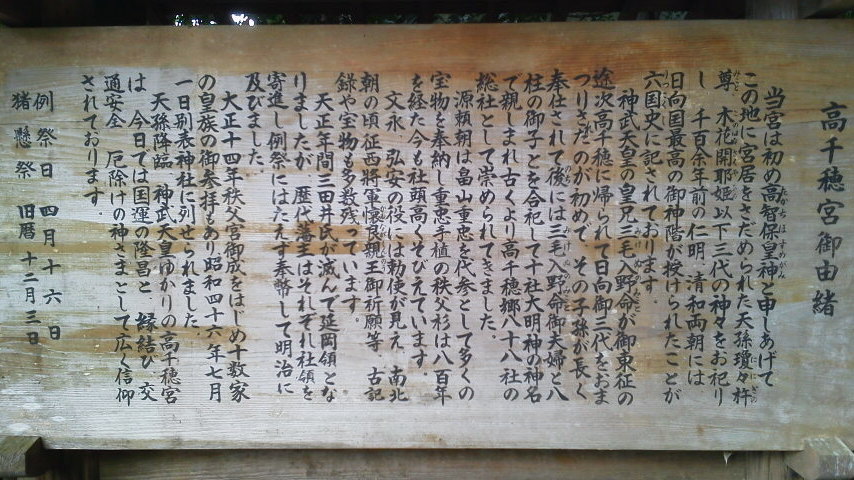 高千穂宮御由緒
当宮は初め高智保皇神と申しあげて
この地に宮居をさだめられた天孫瓊々杵
尊 木花開耶姫以下三代の神々をお祀り
し 千百余年前の仁明 清和両朝には
日向国最高の御神階が授けられたことが
六国史に記されております。
神武天皇の皇兄三毛入野命が御東征の
途次高千穂に帰られて日向御三代をおま
つりされたのが初めで その子孫が長く
奉仕されて後には三毛入野命御夫婦と八
柱の御子とを合祀して十社大明神の神名
で親しまれ古くより高千穂郷八十八社の
総社として崇められてきました。
源頼朝は畠山重忠を代参として多くの
宝物を奉納し重忠手植の秩父杉は八百年
を経た今も社頭高くそびえています
文永 弘安の役には勅使が見え 南北
朝の頃征西将軍懐良親王御祈願等 古記
録や宝物も多数残っています。
天正年間三田井氏が滅んで延岡領とな
りましたが 歴代藩主はそれぞれ社領を
寄進し例祭にはたえず奉幣して明治に
及びました。
大正十四年秩父宮御成をはじめ十数家
の皇族の御参拝もあり昭和四十六年七月
一日別表神社に列せられました
天孫降臨 神武天皇ゆかりの高千穂宮
は 今日では国運の隆昌と 縁結び 交
通安全 厄除けの神さまとして広く信仰
されております。
例祭日 四月十六日
猪懸祭 旧暦十二月三日